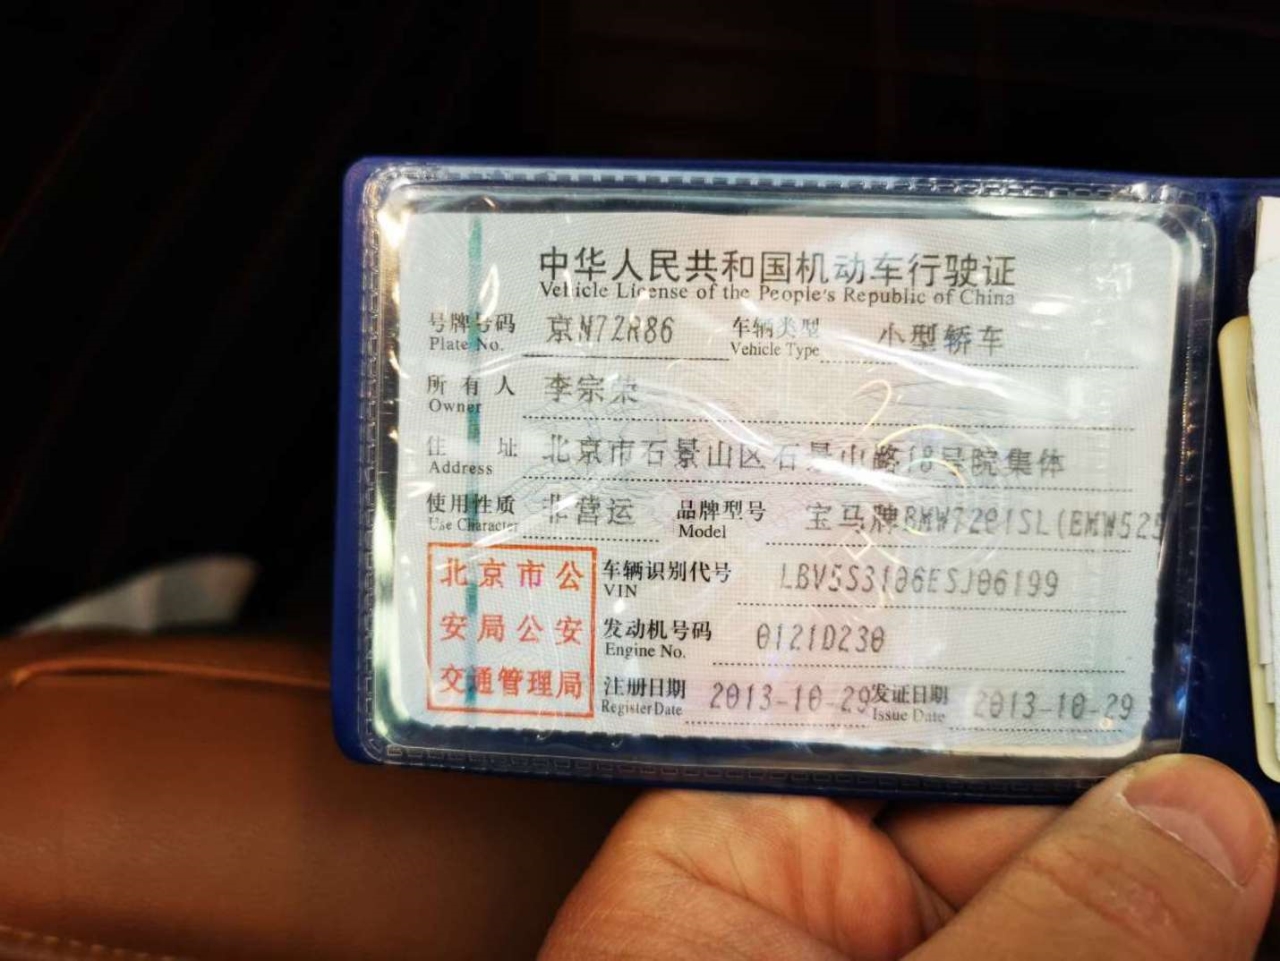 中华人民共和国机动车行驶证
Vehicle License of the People's Republic of China
号牌号码 京N72R86 车辆类型 小型轿车
Plate No. Vehicle Type
所有人 李宗
Owner
住址 北京市石景山区石景山路18号院集体
Address
使用性质 非营运 品牌型号 宝马牌
Use Character Model
北京市公
安局公安
交通管理局
车辆识别代号 LBV5S3106ESJ06199
VIN
发动机号码 0121D230
Engine No.
注册日期 2013-10-29 发证日期 2013-10-29
Register Date Issue Date